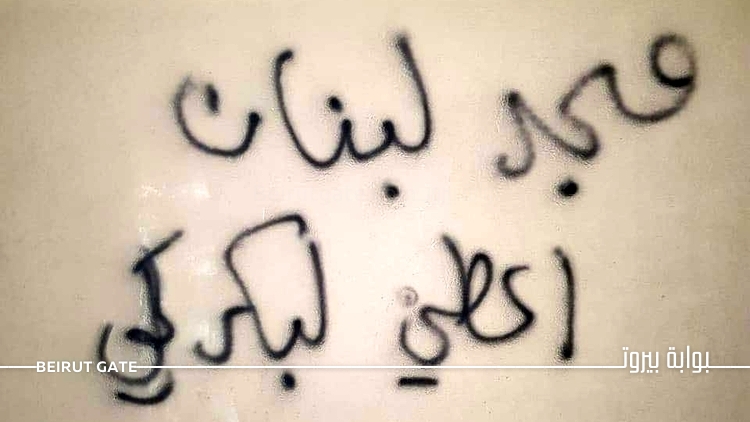 مجد لبنان
اعطي لبكركي
BEIRUT GATE
بوابة بيروت